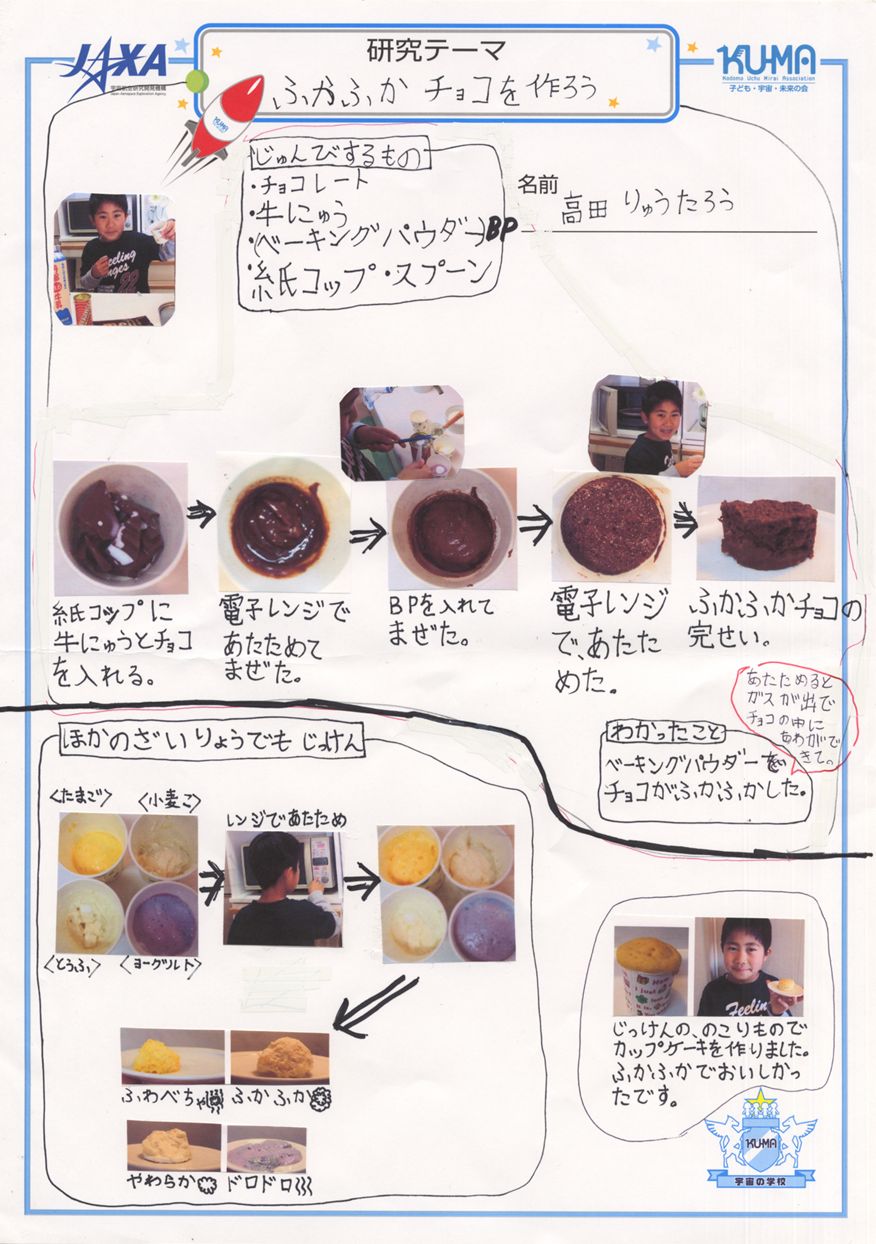 JAXA
宇宙航空研究開発機構
Japan Aerospace Exploration Agency
研究テーマ
ふかふかチョコを作ろう
KU-MA
Kodomo Uchu Mirai Association
子ども・宇宙・未来の会
KU-MA
じゅんびするもの
・チョコレート
・牛にゅう
・(ベーキングパウダー)BP
・紙コップ・スプーン
名前
高田 りゅうたろう
紙コップに
牛にゅうとチョコ
を入れる。
電子レンジで
あたためて
まぜた。
BPを入れて
まぜた。
電子レンジ
で、あたた
めた。
ふかふかチョコの
完せい。
あたためると
ガスが出て
チョコの中に
あわがで
きて。
わかったこと
ベーキングパウダーを
チョコがふかふかした。
ほかのざいりょうでもじっけん
<たまご>
<小麦こ>
<とうふ>
<ヨーグルト>
レンジであたため
ふわべちゃ
ふかふか
やわらか
ドロドロ
じっけんの、のこりもので
カップケーキを作りました。
ふかふかでおいしかっ
たです。
KU-MA
宇宙の学校